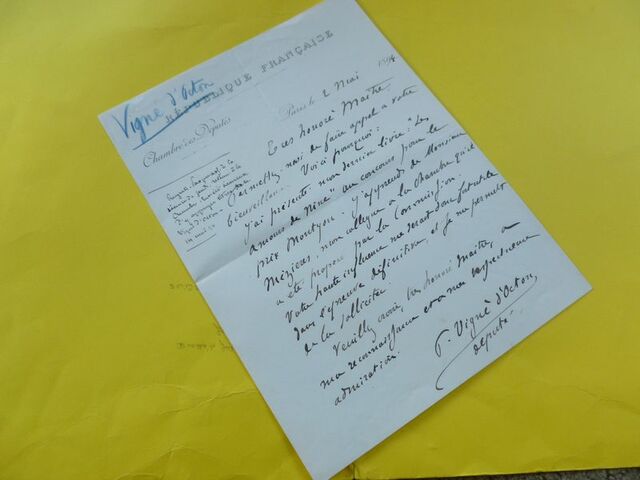 Vigné d'Octon
RÉPUBLIQUE FRANÇAISE
Chambre des Députés
Paris, le 2 Mai 1894
Très honoré Maître,
Permettez-moi de faire appel à votre
bienveillance. Voici pourquoi :
j'ai présenté mon dernier livre : "Les
amours de Nine" au concours pour le
prix Montyon. J'apprends de Monsieur
Mézières, mon collègue à la Chambre qu'il
a été proposé par la Commission.
Votre haute influence me serait
dans l'épreuve définitive, et je me permets
de la solliciter.
Veuillez croire, très honoré Maître, à
ma reconnaissance et à mon respectueuse
admiration.
P. Vigné d'Octon,
député